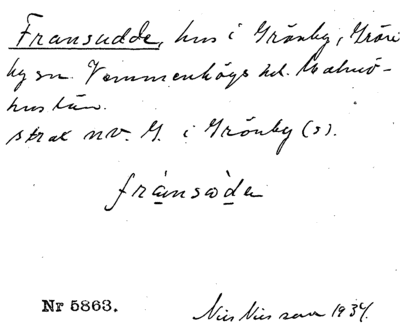 Fransudde, hus i Grönby, Grön
by sn. Vemmenhögs hd. Malmö-
hus län.
strax nv. G. i Grönby (s).
frånsùdeν
Nr 5863.
Nils Nilsson 1934.